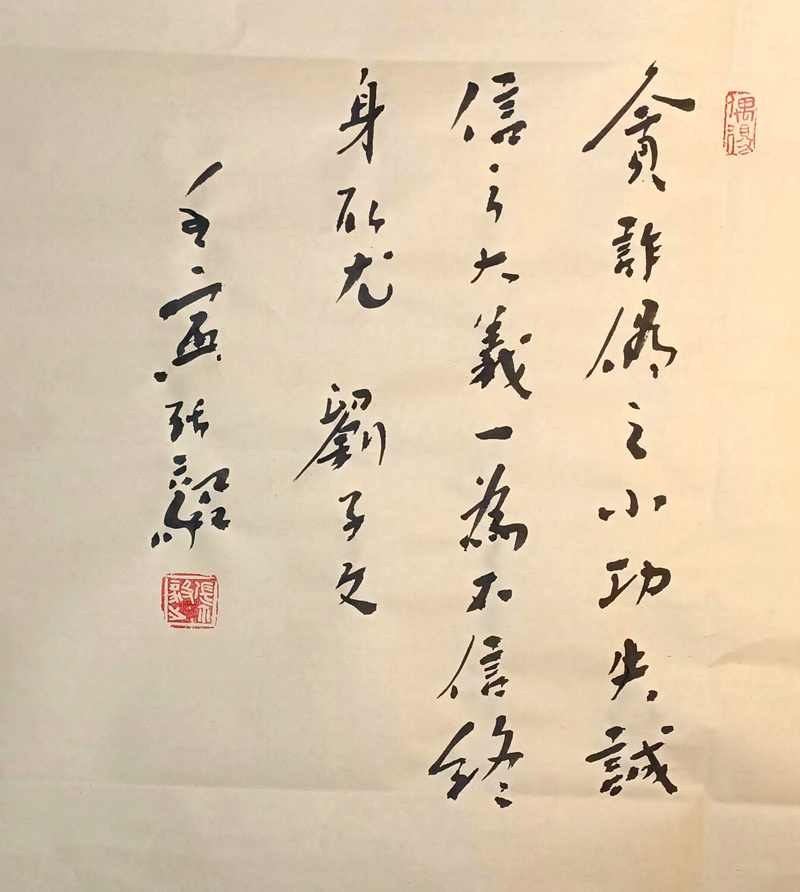 偶得
貪詐偽之小功失誠
信之大義一為不信終
身所尤 劉子文
寅张